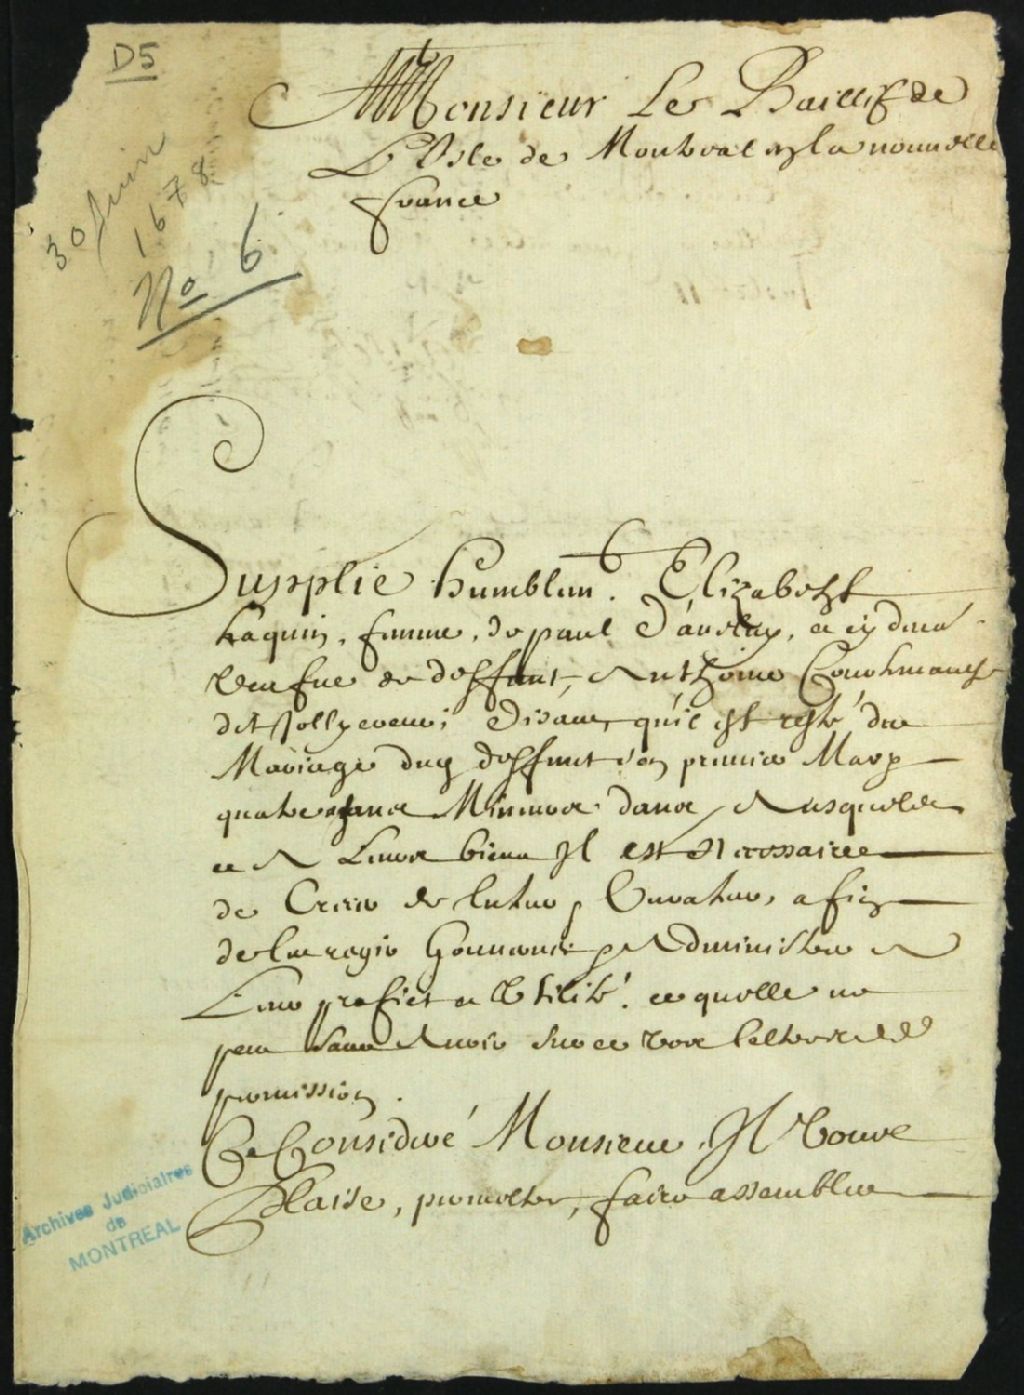 D5
30 Juin
1678
No 6
A Monsieur Le Baillif de
L'Isle de Montreal en la nouvelle
france
Supplie humblem. Elizabeth
haquin, femme, de paul Dauelny, et cy deua
veufue de deffunt, Anthoine Courtemanche
dit Jolly coeur; Disant qu'il est resté du
Mariage dud deffunt son premier Mary
quatre enfans Mineurs d'ans, Ausquels
et A Leurs biens Il est Necessaire
de Creer de tuteur, Curateur, afin
de les regir Gouuerner, Administrer A
Leur profict et Vtilité. ce quelle ne
peut sans Auoir sur ce vos lettres de
permission.
Ce Consideré Monsieur, Il Vous
Plaise, permettre, faire assembler
Archives Judiciaires
de
MONTREAL